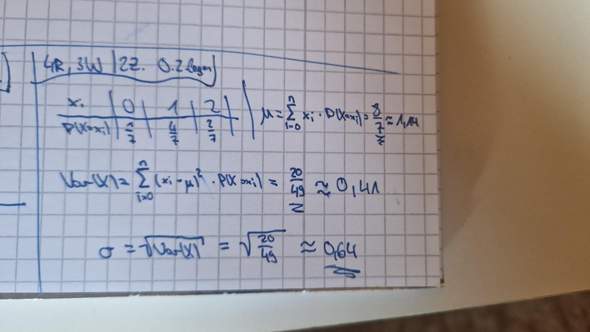 4R, 3W | 2Z. O.Zlegen
xᵢ | 0 | 1 | 2 |
P(X=xᵢ) | 1/7 | 4/7 | 2/7
μ = ∑ⁿᵢ₌₀ xᵢ · P(X=xᵢ) = 8/7 ≈ 1,14
Var(X) = ∑ⁿᵢ₌₀ (xᵢ - μ)² · P(X=xᵢ) = 20/49 ≈ 0,41
σ = √Var(X) = √20/49 ≈ 0,64